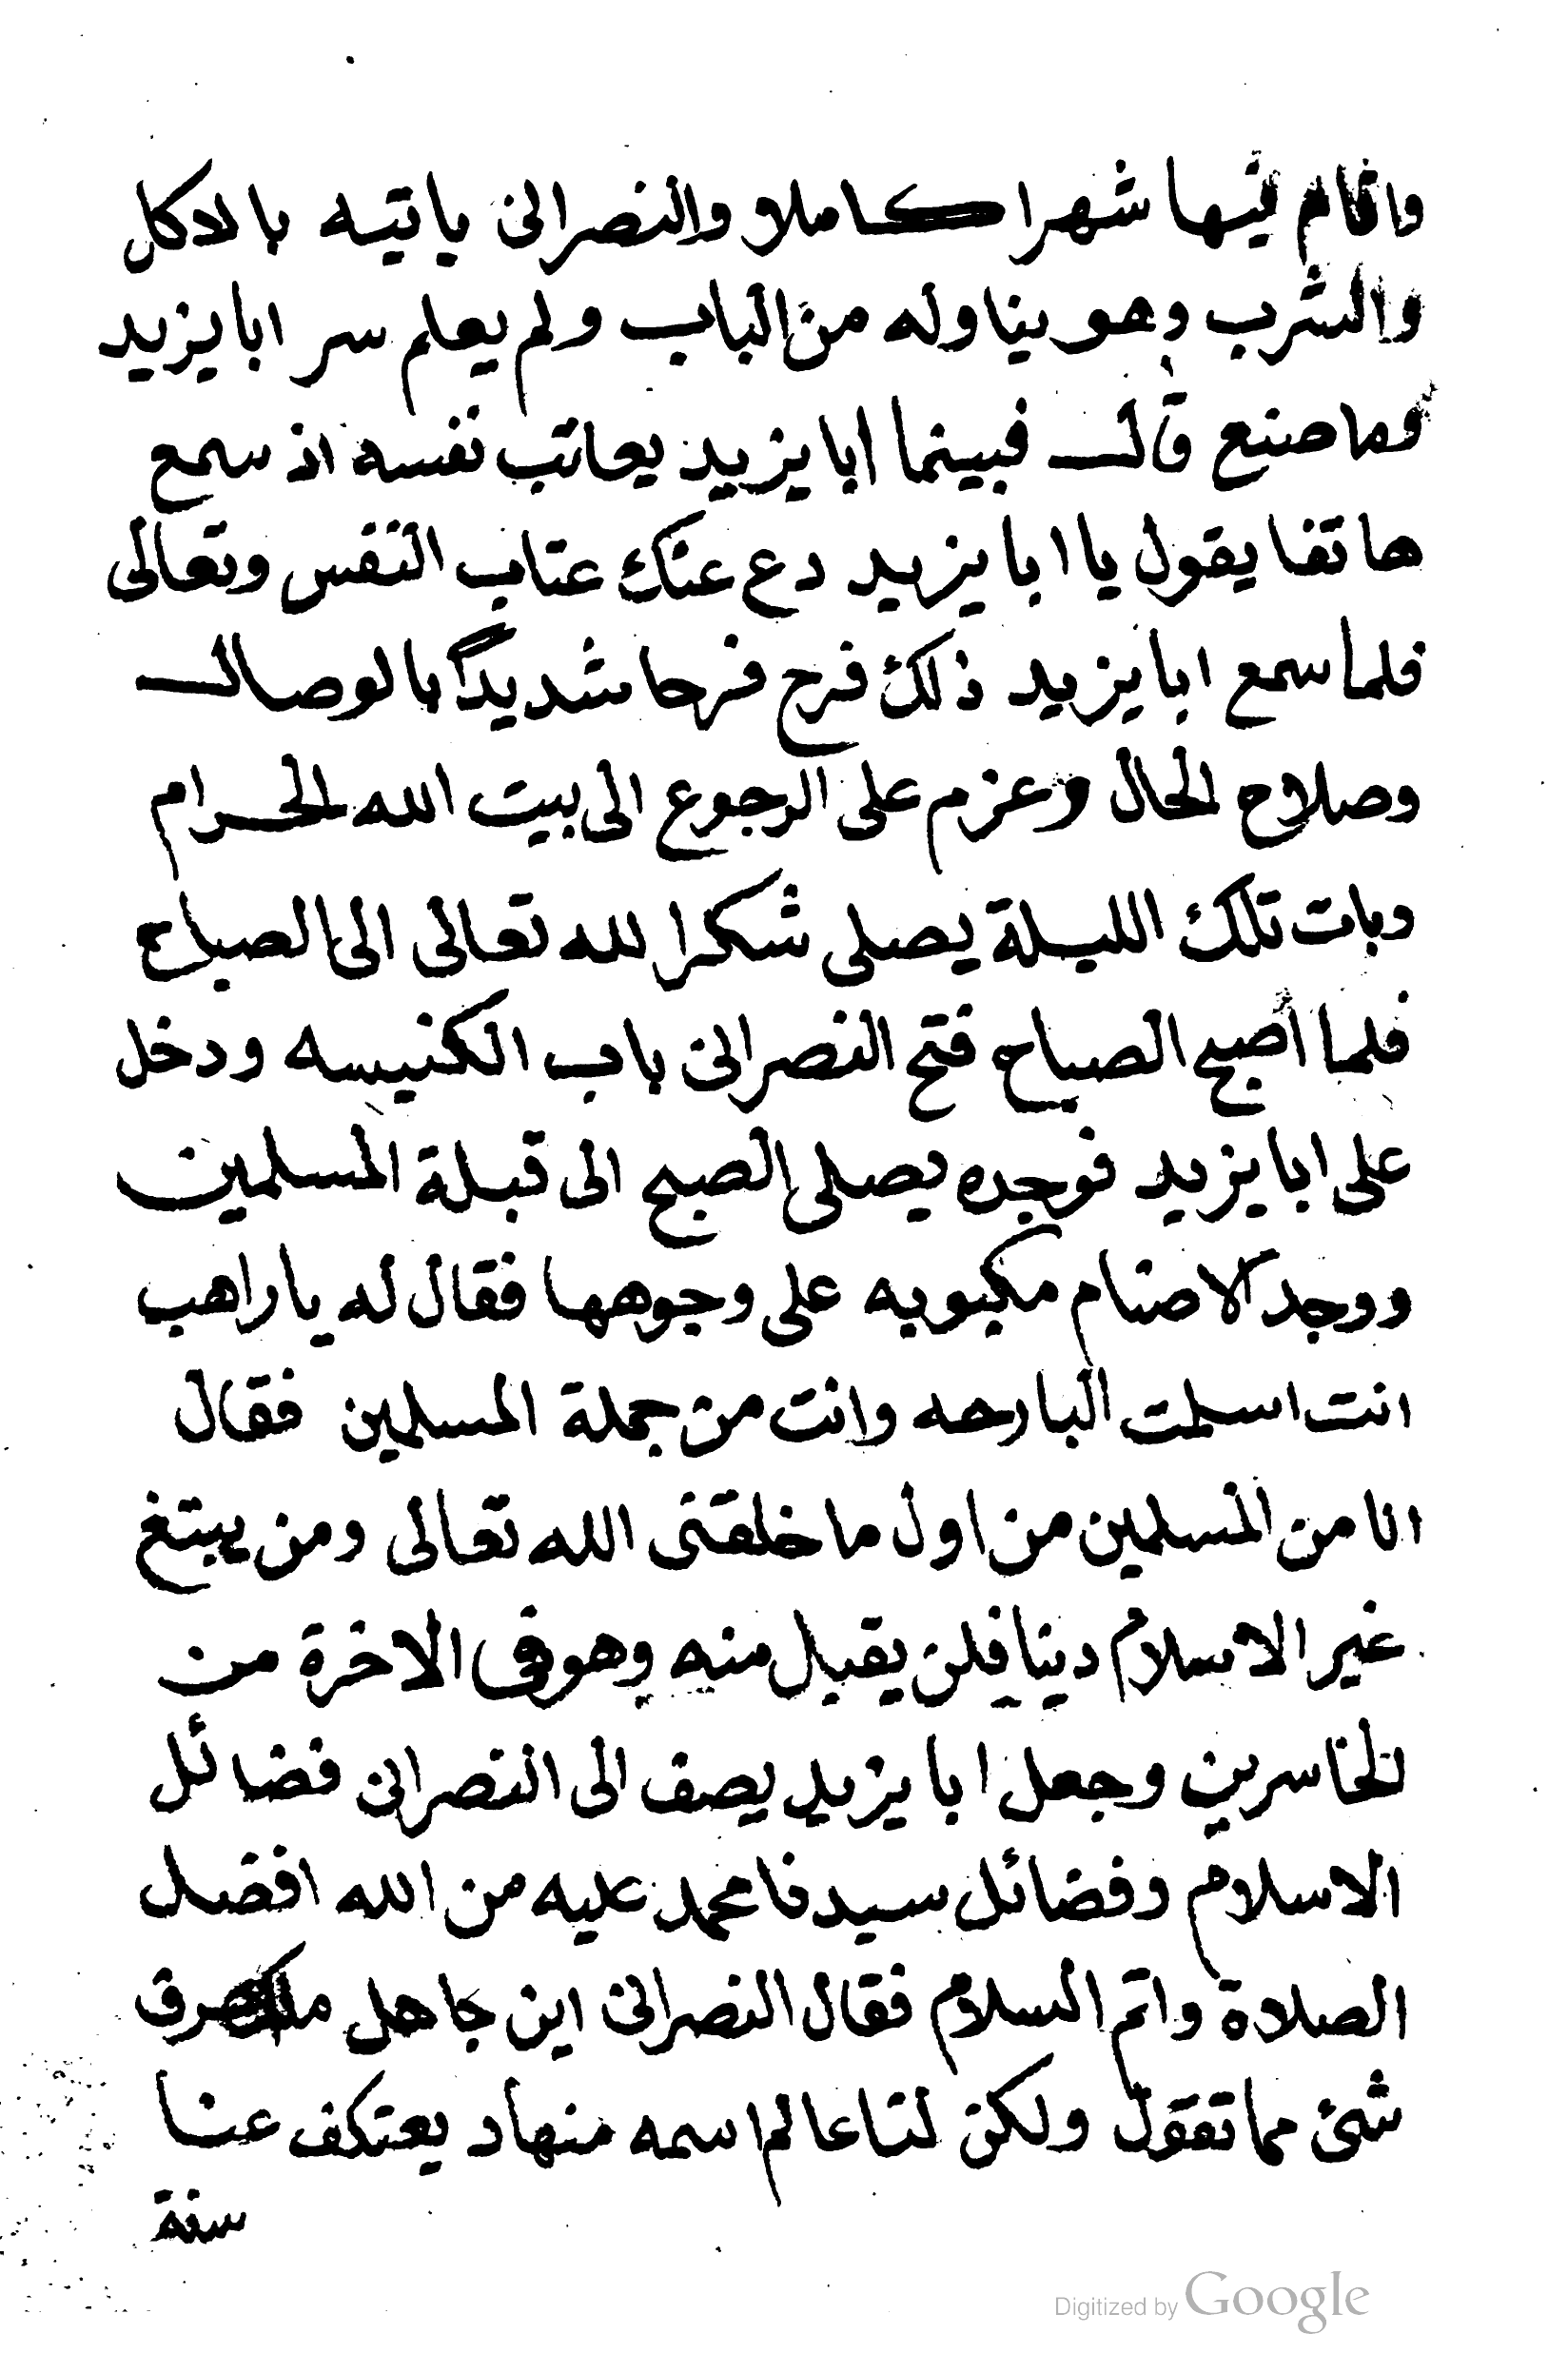 واقام فيها شهرا كاملا والنصرانى ياتيه بالاكل
والشرب وهو يناوله من الباب ولم يعلم سر ابا يزيد
وما صنع قال فبينما ابا يزيد يعاتب نفسه اذ سمع
هاتفا يقول يا ابا يزيد دع عنك عتاب النفس وتعالى
فلما سمع ابا يزيد ذلك فرح فرحا شديداً بالوصال
وصلاح الحال وعزم على الرجوع الى بيت الله الحرام
وبات تلك الليلة يصلى شكرا لله تعالى الى الصباح
فلما اصبح الصباح فتح النصرانى باب الكنيسه ودخل
على ابا يزيد فوجده يصلى الصبح الى قبلة المسلمين
ووجد الاصنام مكبوبه على وجوهها فقال له يا راهب
انت اسلمت البارحه وانت من جملة المسلمين فقال
انا من المسلمين من اول ما خلقنى الله تعالى ومن يبتغ
غير الاسلام دينا فلن يقبل منه وهو فى الاخرة من
الخاسرين وجعل ابا يزيد يصف الى النصرانى فضائل
الاسلام وفضائل سيدنا محمد عليه من الله افضل
الصلاة واتم السلام فقال النصرانى اين جاهل
شئ مما تقول ولكن لنا عالم اسمه منهاد يعتكف عنا
سنة
Digitized by Google